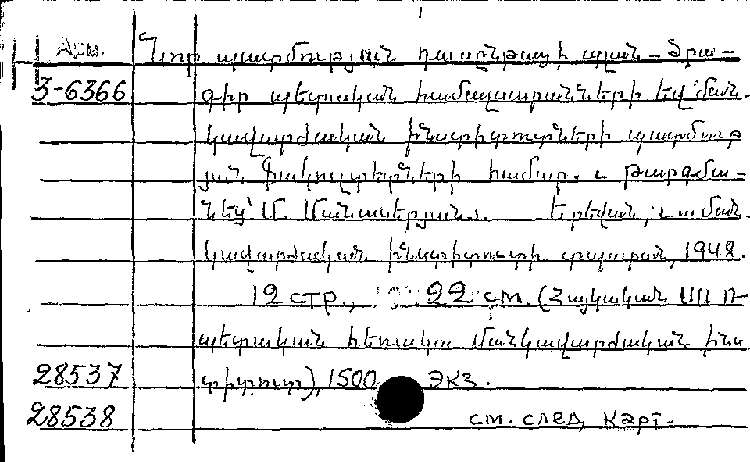 Арм. Նոր պատմության դասընթացի պլան – ծրա–
3-6366 գիր պետական համալսարանների եվ ման-
կավարժական ինստիտուտների պատմութ
յան ֆակուլտետների համար. – թարգմա–
նեց՝ Մ. Մանասերյան. Երեվան, ման-
կավարժական ինստիտուտի տպարան, 1948.
12 стр., 22 см. (Հայկական ՍՍՌ
պետական հեռակա մանկավարժական ինս
28537 տիտուտ), 1500 экз.
28538 см. след. карт.